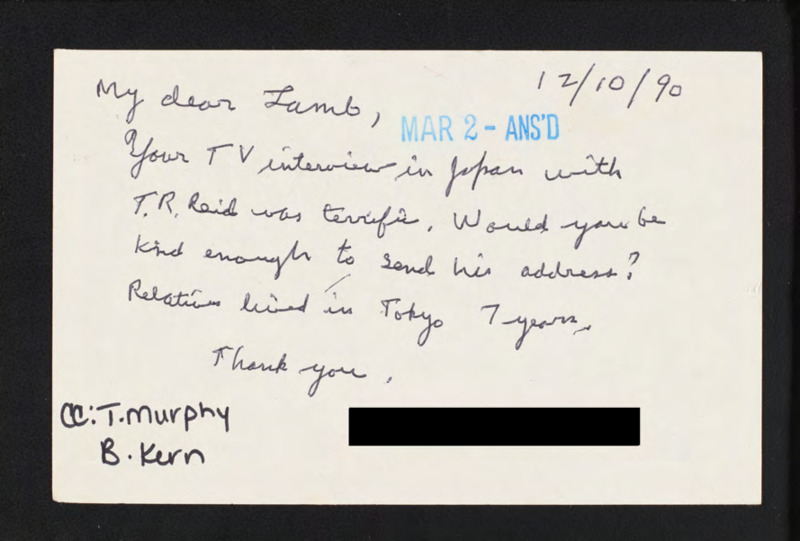 12/10/90
My dear Lamb,
MAR 2 - ANS'D
Your TV interview in Japan with
T.R. Reid was terrific. Would you be
kind enough to send his address?
Relatives lived in Tokyo 7 years.
Thank you.
CC: T. Murphy
B. Kern